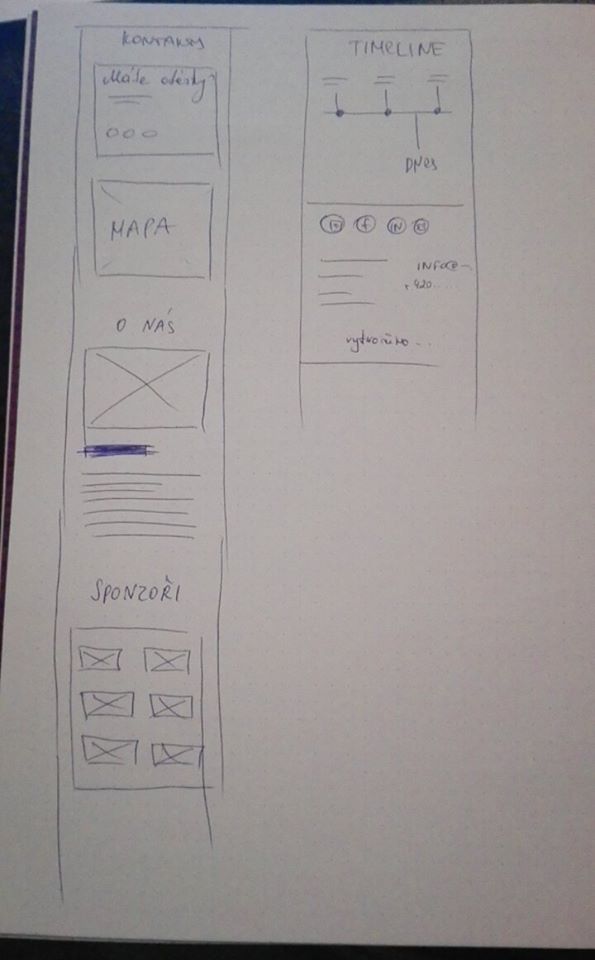 KONTAKTY
Máte otázky?
MAPA
O NÁS
SPONZOŘI
TIMELINE
DNES
f
IN
INFO@...
+420.....
vytvořeno...